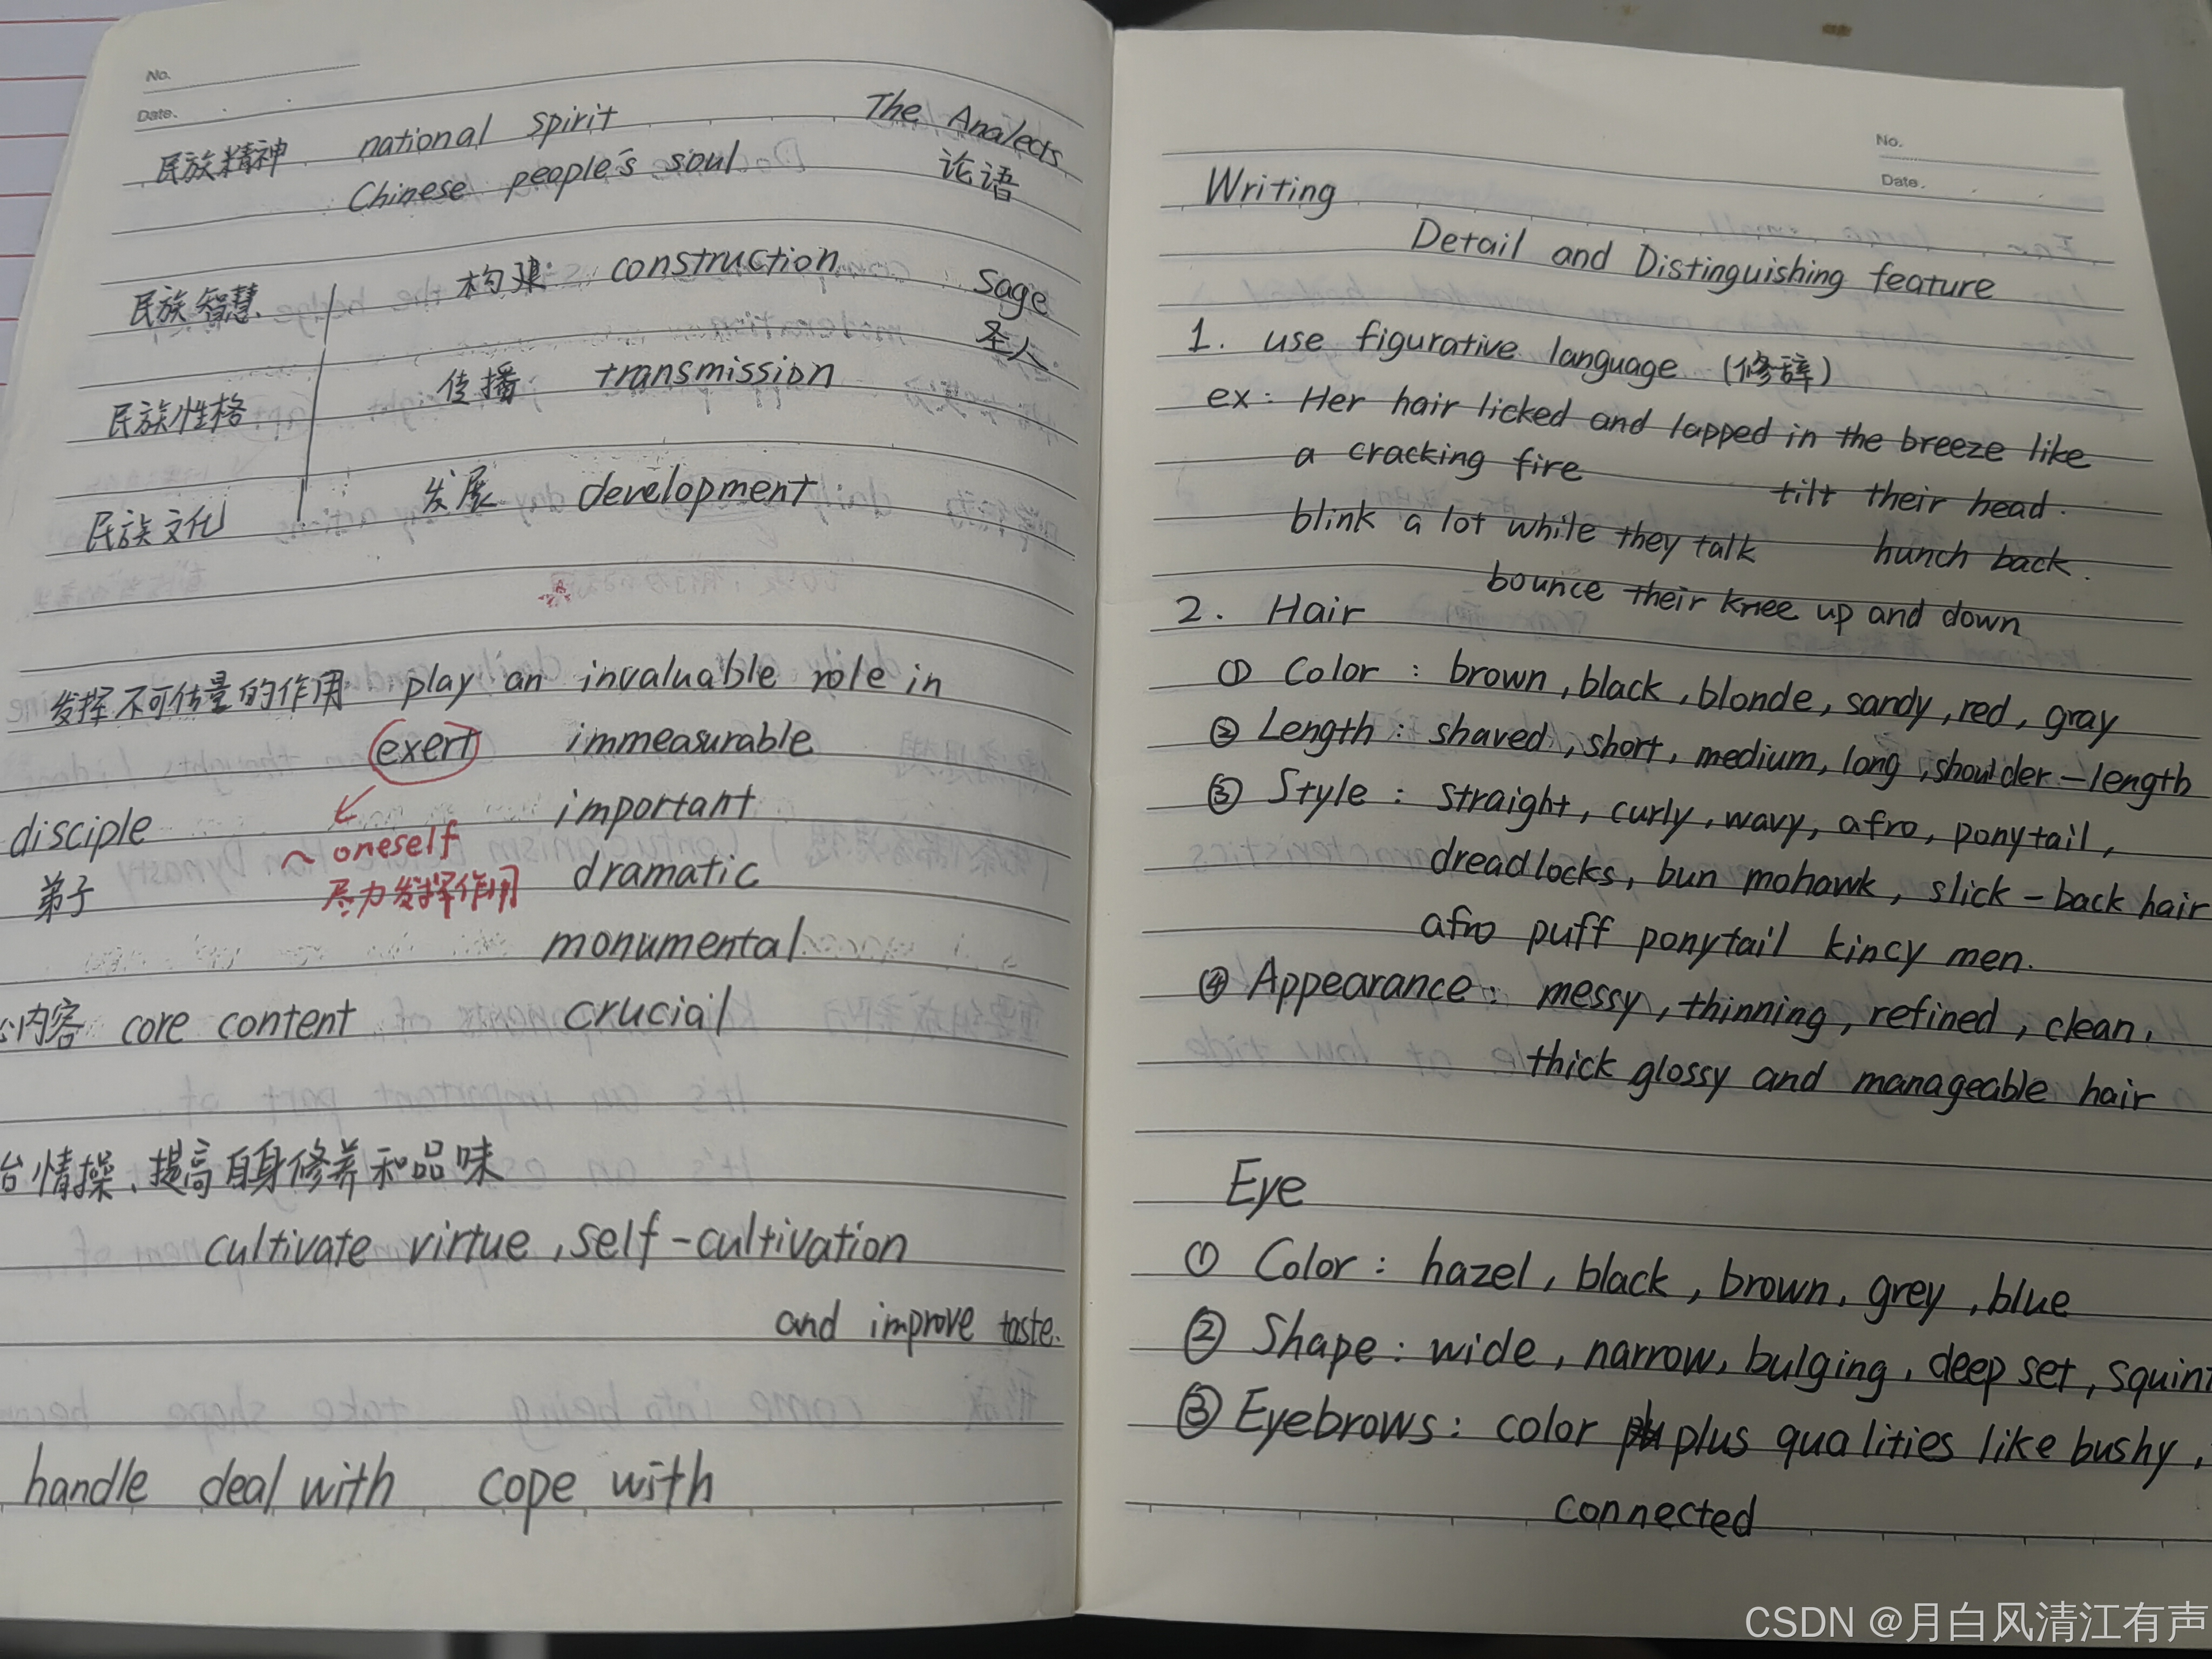 No.
Date.
民族精神 national spirit The Analects
Chinese people's soul 论语
民族智慧 构建 construction Sage
圣人
民族性格 传播 transmission
民族文化 发展 development
发挥不可估量的作用 play an invaluable role in
exert immeasurable
disciple important
~ oneself
弟子 尽力发挥作用 dramatic
monumental
内容 core content crucial
情操、提高自身修养和品味
cultivate virtue, self-cultivation
and improve taste.
handle deal with cope with
No.
Date.
Writing
Detail and Distinguishing feature
1. use figurative language (修辞)
ex: Her hair licked and lapped in the breeze like
a cracking fire tilt their head.
blink a lot while they talk hunch back.
bounce their knee up and down
2. Hair
① Color: brown, black, blonde, sandy, red, gray
② Length: shaved, short, medium, long, shoulder-length
③ Style: straight, curly, wavy, afro, ponytail,
dreadlocks, bun mohawk, slick-back hair
afro puff ponytail kincy men.
④ Appearance: messy, thinning, refined, clean,
thick glossy and manageable hair
Eye
① Color: hazel, black, brown, grey, blue
② Shape: wide, narrow, bulging, deep set, squint
③ Eyebrows: color plus qualities like bushy,
connected
CSDN @月白风清江有声